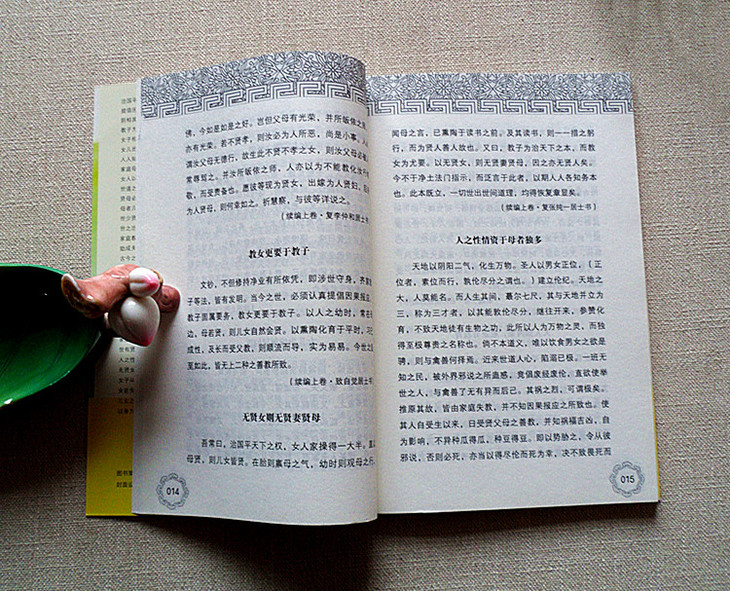 佛，今如是如是之好。岂但父母有光荣，并所皈依之
亦有光荣。若不贤孝，则汝必为人所恶，尚是小事。人
谓汝父母无德行，故生此不贤不孝之女，则汝父母必
常辱骂之。并汝所皈依之师，人亦以为不能教化汝
敬，而受责备也。愿彼等现为贤女，出嫁为人贤妇，
为人贤母，则何幸如之。祈慧察，与彼等详说之。
（续编上卷·复李仲和居士书
教女更要于教子
文钞，不但修持净业有所依凭，即涉世守身，齐家
子等法，皆有发明。当今之世，必须认真提倡因果报应，
子固属要务，教女更要于教子。以人之幼时，常在
边，母若贤，则儿女自然会贤。以熏陶化育于平时，习
成性，及长而受父教，则顺流而导，实为易易。今世之
至如此，皆无上二种之善教所致。
（续编上卷·致自觉居士书
无贤女则无贤妻贤母
吾常曰，治国平天下之权，女人家操得一大半。
母贤，则儿女皆贤。在胎则禀母之气，幼时则观母之
014
闻母之言，已熏陶于读书之前。及其读书，则一一措之躬
行，而为贤人善人故也。又曰，教子为治天下之本，而教
女为尤要。以无贤女，则无贤妻贤母，因之亦无贤人矣。
今不于净土法门指示，而泛言于此者，以期人人各知务本
也。此本既立，一切世出世间道理，均得恢复章显矣。
（续编上卷·复张纯一居士书）
人之性情资于母者独多
天地以阴阳二气，化生万物。圣人以男女正位，（正
位者，素位而行，孰伦尽分之谓也。）建立伦纪。天地之
大，人莫能名。而人生其间，藐尔七尺，其与天地并立为
三，称为三才者，以其能敦伦尽分，继往开来，参赞化
育，不致天地徒有生物之功，此所以人为万物之灵，而独
得至极尊贵之名称也。倘不本道义，唯以饮食男女之欲是
骋，则与禽兽何择焉。近来世道人心，陷溺已极。一班无
知之民，被外界邪说之所蛊惑，竟倡废经废伦，直欲使举
世之人，与禽兽了无有异而后已。其祸之烈，可谓极矣。
推原其故，皆由家庭失教，并不知因果报应之所致也。使
其人自受生以来，日受贤父母之善教，并知祸福吉凶，自
为影响，不异种瓜得瓜，种豆得豆。即以势胁之，令从彼
邪说，否则必死，亦当以得尽伦而死为幸，决不致畏死而
015